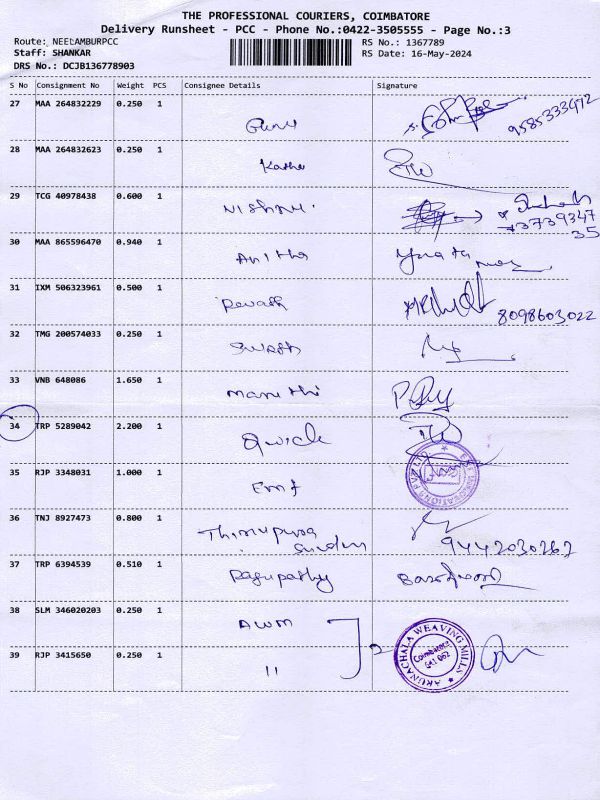 THE PROFESSIONAL COURIERS, COIMBATORE
Delivery Runsheet - PCC - Phone No.:0422-3505555 - Page No.:3
Route: NEELAMBURPCC RS No.: 1367789
Staff: SHANKAR RS Date: 16-May-2024
DRS No.: DCJB136778903
S No Consignment No Weight PCS Consignee Details Signature
27 MAA 264832229 0.250 1 Guru 9585333972
28 MAA 264832623 0.250 1
29 TCG 40978438 0.600 1
30 MAA 865596470 0.940 1 Anitha
31 IXM 506323961 0.500 1 8098603022
32 TMG 200574033 0.250 1
33 VNB 648086 1.650 1 Maruthi
34 TRP 5289042 2.200 1 Qwick
35 RJP 3348031 1.000 1
36 TNJ 8927473 0.800 1 9442030262
37 TRP 6394539 0.510 1 Ragupathy
38 SLM 346020203 0.250 1 AWM 2
ARUNACHALA WEAVING MILLS
Coimbatore
641 062
39 RJP 3415650 0.250 1 11